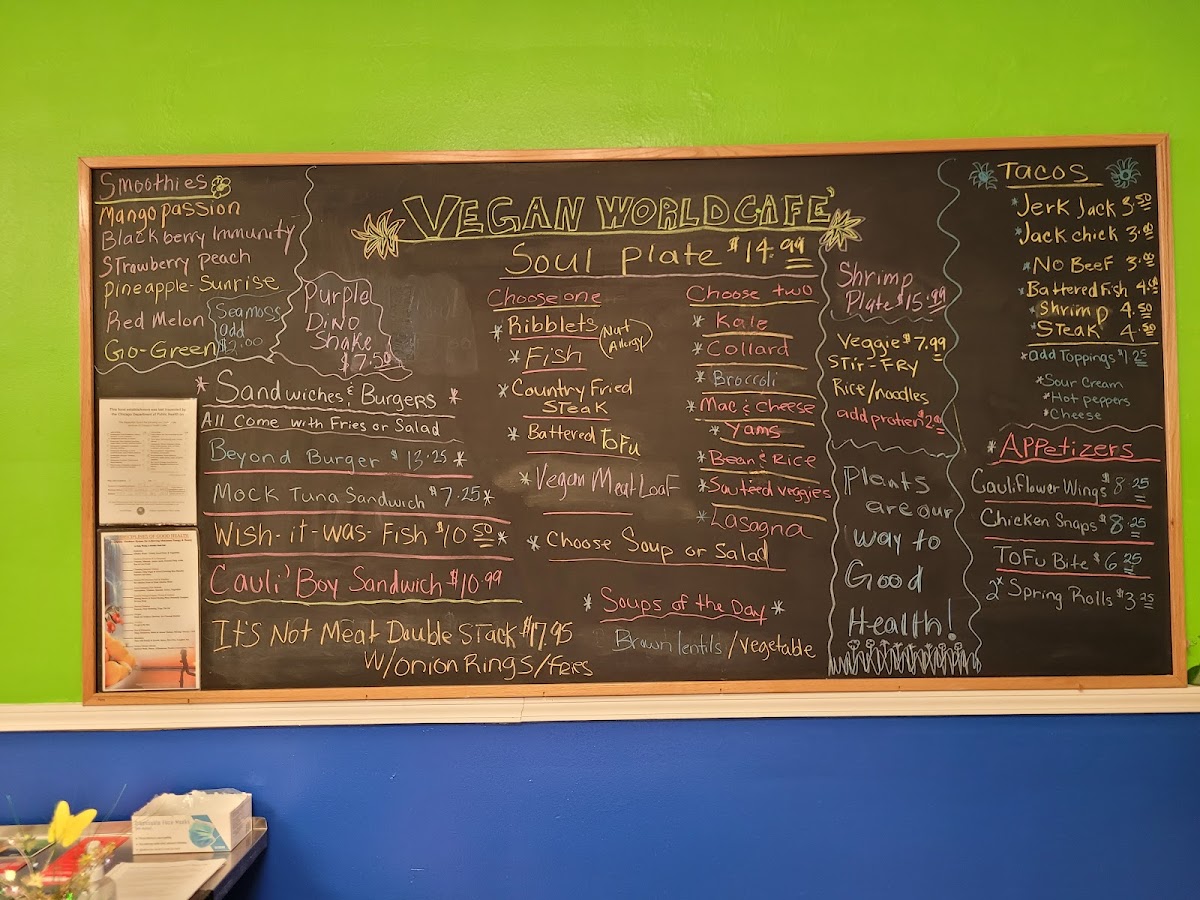 Smoothies
Mango passion
Blackberry Immunity
STrawberry peach
pineapple-Sunrise
Red Melon
Go-Green
Seamoss
add
$2.00
Purple
DiNo
Shake
$7.50
VEGAN WORLD CAFE'
Soul Plate $14.99
Choose one
*Ribblets (Nut Allergy)
*Fish
*Country Fried
STeak
*Battered ToFu
*Vegan MeatLoaF
*Choose Soup or Salad
Choose two
*Kale
*Collard
*Broccoli
*Mac & Cheese
*Yams
*Bean & Rice
*Sauteed veggies
*Lasagna
*Soups of the Day*
Brown lentils/vegetable
*Sandwiches & Burgers*
All Come with Fries or Salad
Beyond Burger $13.25*
Mock Tuna Sandwich $7.25*
Wish-it-was-Fish $10.50*
Cauli'Boy Sandwich $10.99
It's Not Meat Double STack $17.95
W/onion Rings/Fries
Shrimp
Plate $15.99
Veggie $7.99
STir-FRy
Rice/noodles
add protien $2.00
Plants
are our
way to
Good
Health!
Tacos
*Jerk Jack 3.50
*Jack chick 3.00
*No BeeF 3.00
*Battered Fish 4.00
*Shrimp 4.50
*STeak 4.50
*add Toppings $1.25
*Sour Cream
*Hot peppers
*Cheese
*APPetizers
CauliFlower Wings $8.25
Chicken Snaps $8.25
ToFu Bite $6.25
2* Spring Rolls $3.25
DISCIPLINES OF GOOD HEALTH